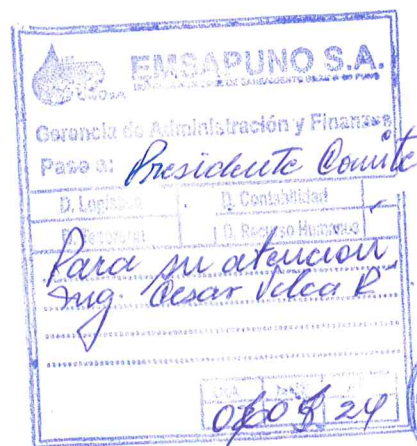 EMSAPUNO S.A.
Gerencia de Administración y Finanzas
Pase a: Presidente Comité
D. Logística D. Contabilidad
D. Recurso Humanos
Para su atención
Ing. Cesar Vilca R
24